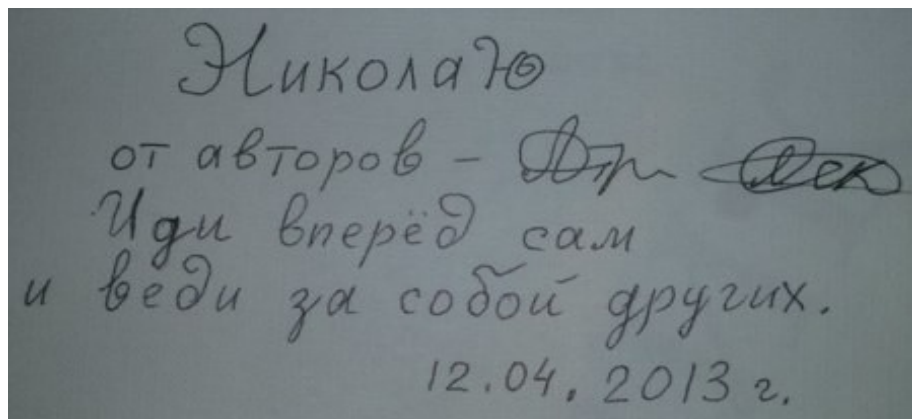 Николаю
от авторов –
Иди вперёд сам
и веди за собой других.
12.04.2013 г.